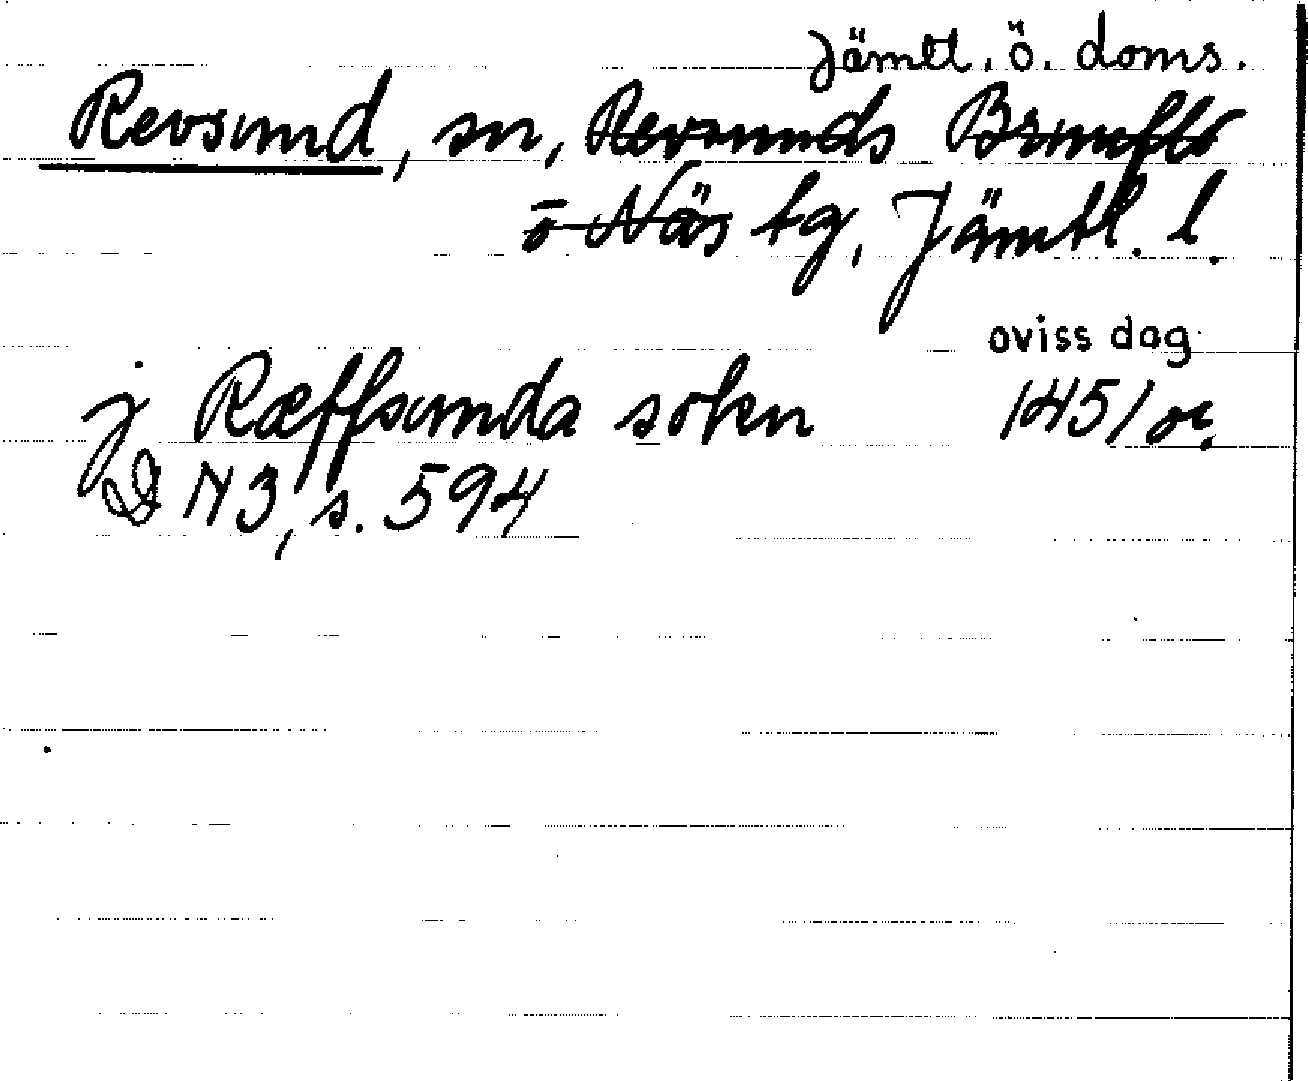 Jämtl. ö. doms.
Revsund, sn, Revsunds Brunflo
o Näs tg, Jämtl. l.
oviss dag
j Ræffsunda sokn 1451 or.
D N 3, s. 594